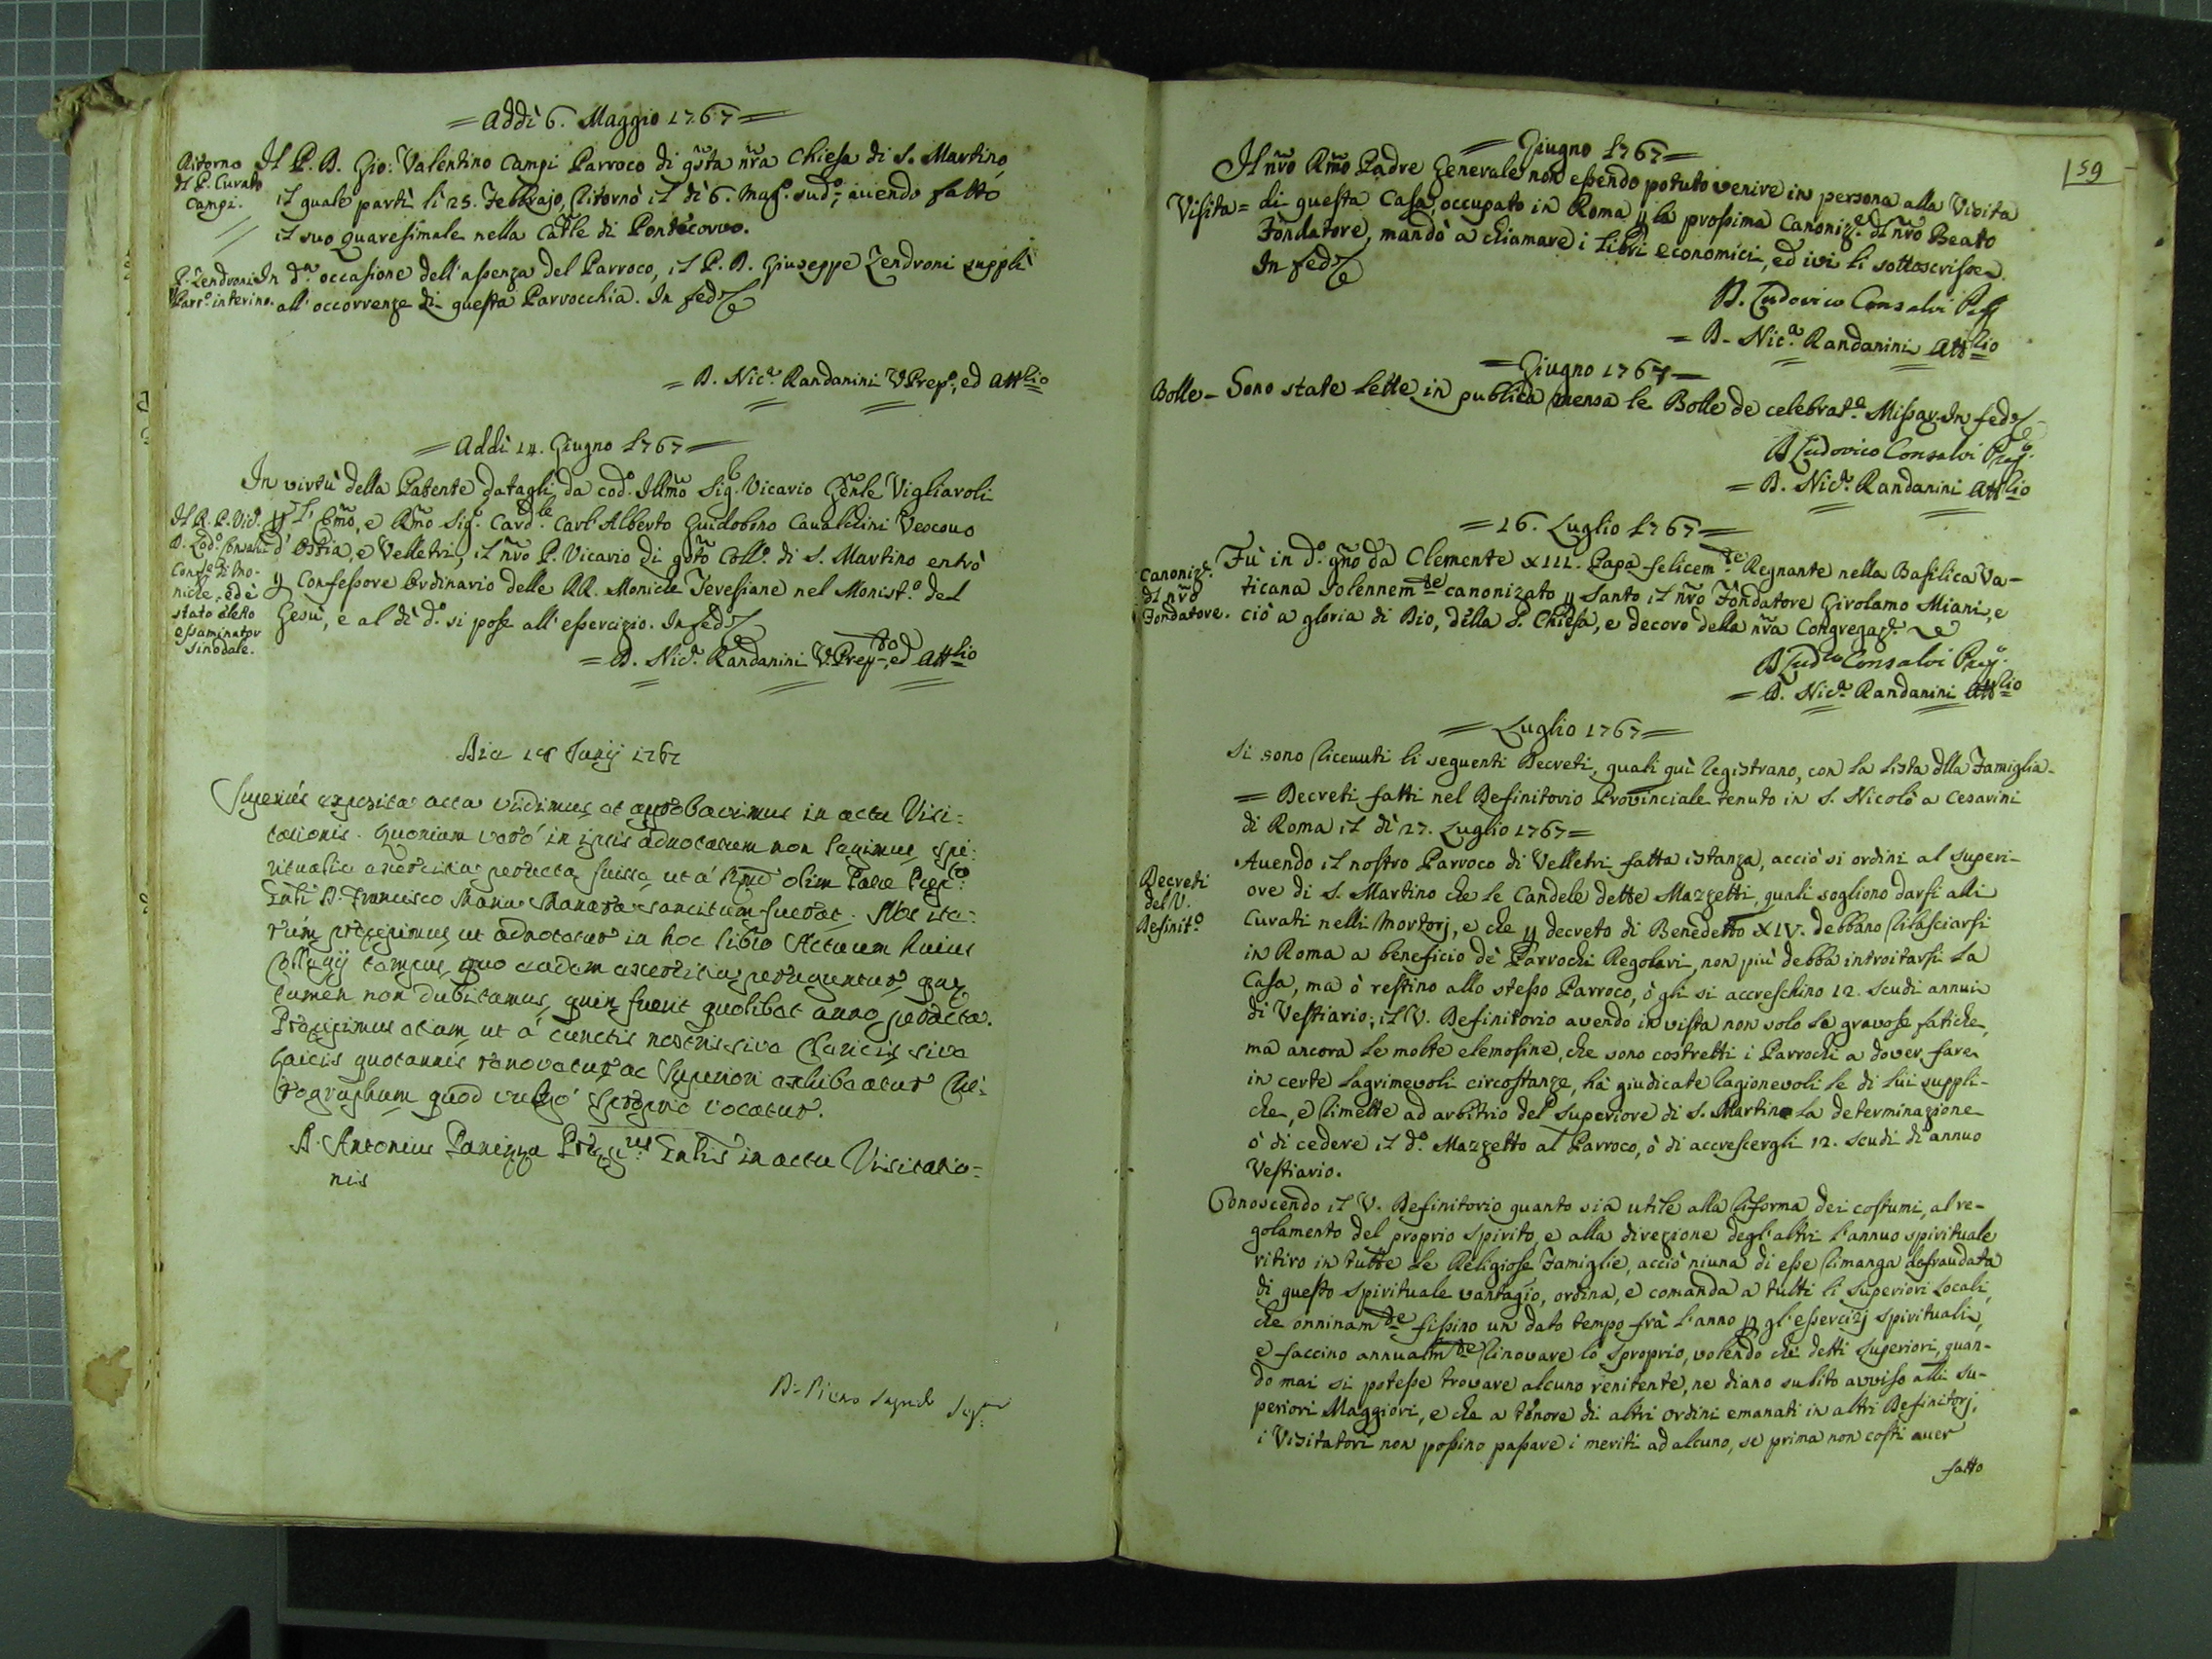 = Addì 6. Maggio 1767 =
Ritorno
del P. Curato
Campi.
Il P. D. Gio: Valentino Campi Parroco di q̃sta nr̃a Chiesa di S. Martino,
il quale partì li 25. Febbrajo, ritornò il dì 6. Mag.º sud.º, avendo fatto
il suo quaresimale nella Catt̃le di Pontecorvo.
P. Zendroni
Parr.º interino.
In d.ª occasione dell'assenza del Parroco, il P. D. Giuseppe Zendroni supplì
all'occorrenze di questa Parrocchia. In fede
= D. Nic.ª Randanini V.Prep.º, ed Attlio
= Addì 14. Giugno 1767 =
In virtù della Patente datagli da cod.º Illm̃o Sig.r Vicario Gen̄le Vigliaroli
Il R. P. Vic.º
D. Lod.º Consalvi
Conf.e di Mo-
niche, ed è
stato eletto
essaminator
sinodale.
p l'Em̃o, e Rm̃o Sig.r Card.le Carl'Alberto Guidobono Cavalchini Vescovo
d'Ostia, e Velletri, il nr̃o P. Vicario di q̃sto Coll.º di S. Martino entrò
p Confessore Ordinario delle RR. Monache Teresiane nel Monist.º del
Gesù, e al dì d.º si pose all'essercizio. In fede
= D. Nic.ª Randanini V.Prep.to, ed Attlio
Die 18 Junij 1767
Superius exposita acta vidimus et approbavimus in actu Visi:
tationis. Quoniam verò in ipsis adnotatum non legimus spi:
ritualia exercitia peracta fuisse, ut à Rm̃o olim Patre Præp.to
Gn̄li D. Francisco Maria Manara sancitum fuerat. Nos ite:
rum præcipimus ut adnotetur in hoc libro Actuum huius
Collegij tempus, quo eadem exercitia peraguntur, quæ
tamen non dubitamus, quin fuerit quolibet anno peracta.
Præcipimus etiam ut à cunctis nostris sive Clericis sive
Laicis quotannis renovetur ac Superiori exhibeatur Chi:
rographum quod vulgò Sproprio vocatur.
D. Antonius Panizza Præp.us Gn̄lis in actu Visitatio:
nis
D. Piero Sagredo Seg.rio
59
= Giugno 1767 =
Visita =
Il nr̃o Rm̃o Padre Generale non essendo potuto venire in persona alla Visita
di questa Casa, occupato in Roma p la prossima Canoniz.e del nr̃o Beato
Fondatore, mandò a chiamare i Libri economici, ed ivi li sottoscrisse.
In fede
D. Ludovico Consalvi Pp
= D. Nic.ª Randanini Attlio
= Giugno 1767 =
Bolle - Sono state lette in publica mensa le Bolle de celebrat.e Missar. In fede
D Ludovico Consalvi Prep.º
= D. Nic.ª Randanini Attlio
= 16. Luglio 1767 =
Canoniz.e
del nr̃o
Fondatore.
Fù in d.º g̃no da Clemente XIII. Papa felicem.te Regnante nella Basilica Va-
ticana solennem.te canonizato p Santo il nr̃o Fondatore Girolamo Miani, e
ciò a gloria di Dio, della S. Chiesa, e decoro della nr̃a Congregaz.e
D Lud.co Consalvi Prep.º
= D. Nic.ª Randanini Attlio
= Luglio 1767 =
Si sono ricevuti li seguenti Decreti, quali quì registrano, con la lista della Famiglia.
= Decreti fatti nel Definitorio Provinciale tenuto in S. Nicolò a Cesarini
di Roma il dì 27. Luglio 1767 =
Decreti
del V.
Definit.º
Avendo il nostro Parroco di Velletri fatta istanza, acciò si ordini al superi-
ore di S. Martino che le Candele dette Mazzetti, quali sogliono darsi alli
Curati nelli Mortorj, e che p decreto di Benedetto XIV. debbano rilasciarsi
in Roma a beneficio de' Parrochi Regolari, non più debba introitarsi la
Casa, ma ò restino allo stesso Parroco, ò gli si accreschino 12. scudi annui
di Vestiario; il V. Definitorio avendo in vista non solo le gravose fatiche,
ma ancora le molte elemosine, che sono costretti i Parrochi a dover fare
in certe lagrimevoli circostanze, hà giudicate ragionevoli le di lui suppli-
che, e rimette ad arbitrio del Superiore di S. Martino la determinazione
ò di cedere il d.º Mazzetto al Parroco, ò di accrescergli 12. scudi di annuo
Vestiario.
Conoscendo il V. Definitorio quanto sia utile alla riforma dei costumi, al re-
golamento del proprio spirito, e alla direzione degl'altri l'annuo spirituale
ritiro in tutte le Religiose Famiglie, acciò niuna di esse rimanga defraudata
di questo spirituale vantagio, ordina, e comanda a tutti li Superiori Locali,
che onninam.te fissino un dato tempo frà l'anno p gl'essercizj spirituali,
e faccino annualm.te rinovare lo Sproprio, volendo che detti Superiori, quan-
do mai si potesse trovare alcuno renitente, ne diano subito avviso alli Su-
periori Maggiori, e che a tenore di altri ordini emanati in altri Definitorj,
i Visitatori non possino passare i meriti ad alcuno, se prima non costi aver
fatto